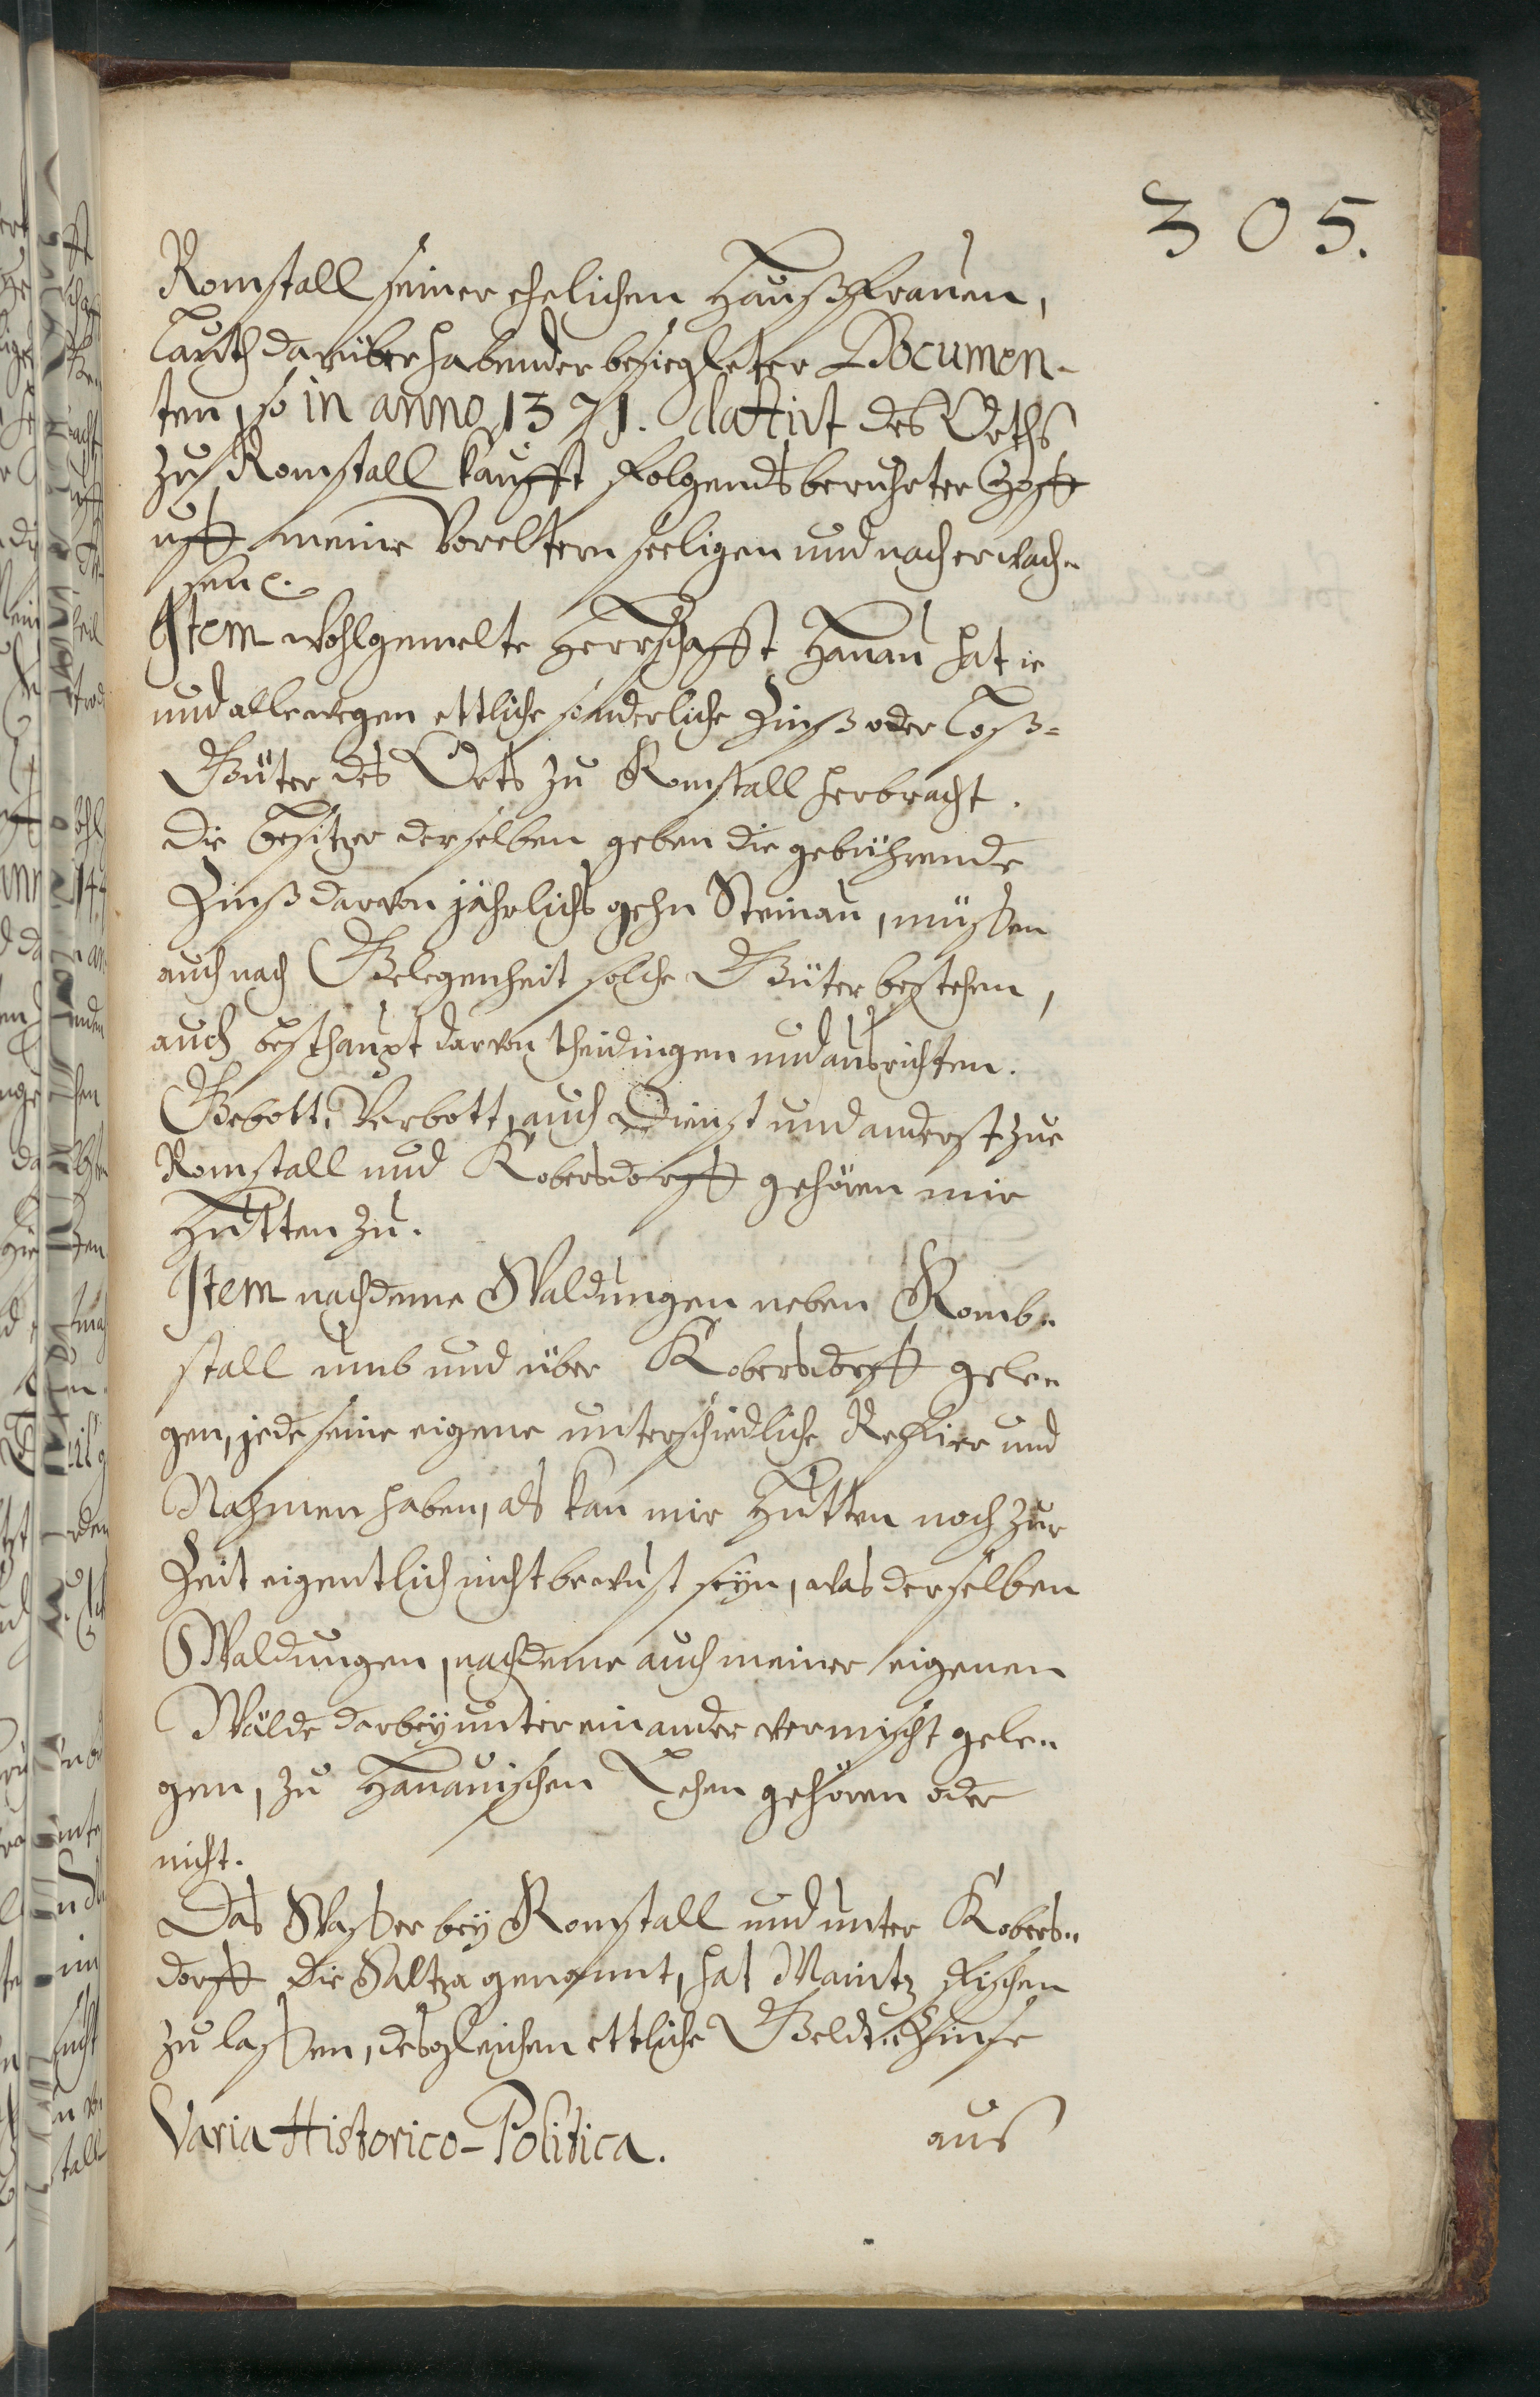 305.
Romstall seiner ehelichen Haußfrauen,
lauth darüber habender besiegleter Documen-
ten, so in anno 1371. dattirt des Orths
zu Romstall kaufft folgendts beruhrter Hoff
uff meine Voreltern seeligen und nach erwach-
sen
Item wohlgemelte Herrschafft Hanau hat ie
und allewegen ettliche sonderliche Zinß oder Loß-
Güter des Orts zu Romstall herbracht.
Die besitzer derselben geben die gebührende
Zinß darvon jährlichs gehn Steinau, müßen
auch nach Gelegenheit solche Güter bestehen,
auch besthaupt darvon theidingen und ausrichten.
Gebott, Verbott, auch Dienst und anderst zue
Romstall und Kobersdorff gehören mir
Hutten zu.
Item nachdeme Waldungen neben Romb-
stall umb und über Kobersdorff gele-
gen, jede seine eigene unterschiedliche Reffier und
Nahmen haben, als kan mir Hutten noch zur
Zeit eigentlich nicht bewust seyn, was derselben
Waldungen, nachdeme auch meiner eigenen
Wälde darbey untereinander vermischt gele-
gen, zu Hanauischen Lehen gehören oder
nicht.
Das Waßer bey Romstall und unter Kobers-
dorff die Saltza genannt, hat Maintz fischen
zu laßen, desgleichen ettliche Geldt-Zinse
Varia Historico-Politica. aus